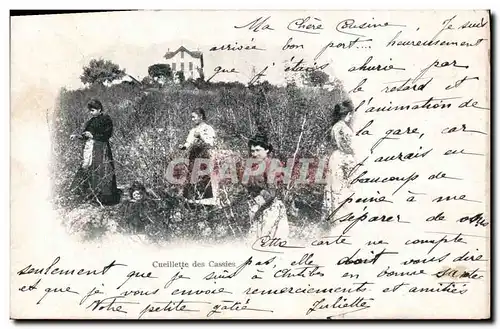 Ma Chère Cousine Je suis
arrivée à bon port... heureusement
que j'étais ahurie par
le retard et
l'animation de
la gare, car
j'aurais eu
beaucoup de
peine à me
séparer de
Cueillette des Cassies
Cette carte ne compte
pas, elle doit vous dire
seulement que je suis à Antibes en bonne santé
et que je vous envoie remerciements et amitiés
Votre petite gatée Juliette
CPA PHILATELIE